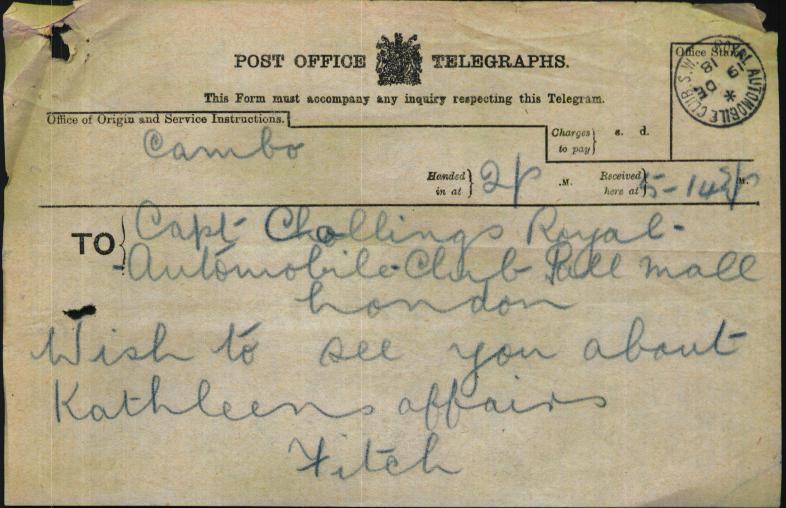 POST OFFICE TELEGRAPHS.
This Form must accompany any inquiry respecting this Telegram.
Office Stamp.
ROYAL AUTOMOBILE CLUB S.W.
19 DE 18
Office of Origin and Service Instructions.
Cambo
Charges to pay } s. d.
Handed in at } 2 P .M. Received here at } 5-14 P M.
TO { Capt Challings Royal-
-Automobile-Club-Pall mall
London
Wish to see you about
Kathleens affairs
Fitch